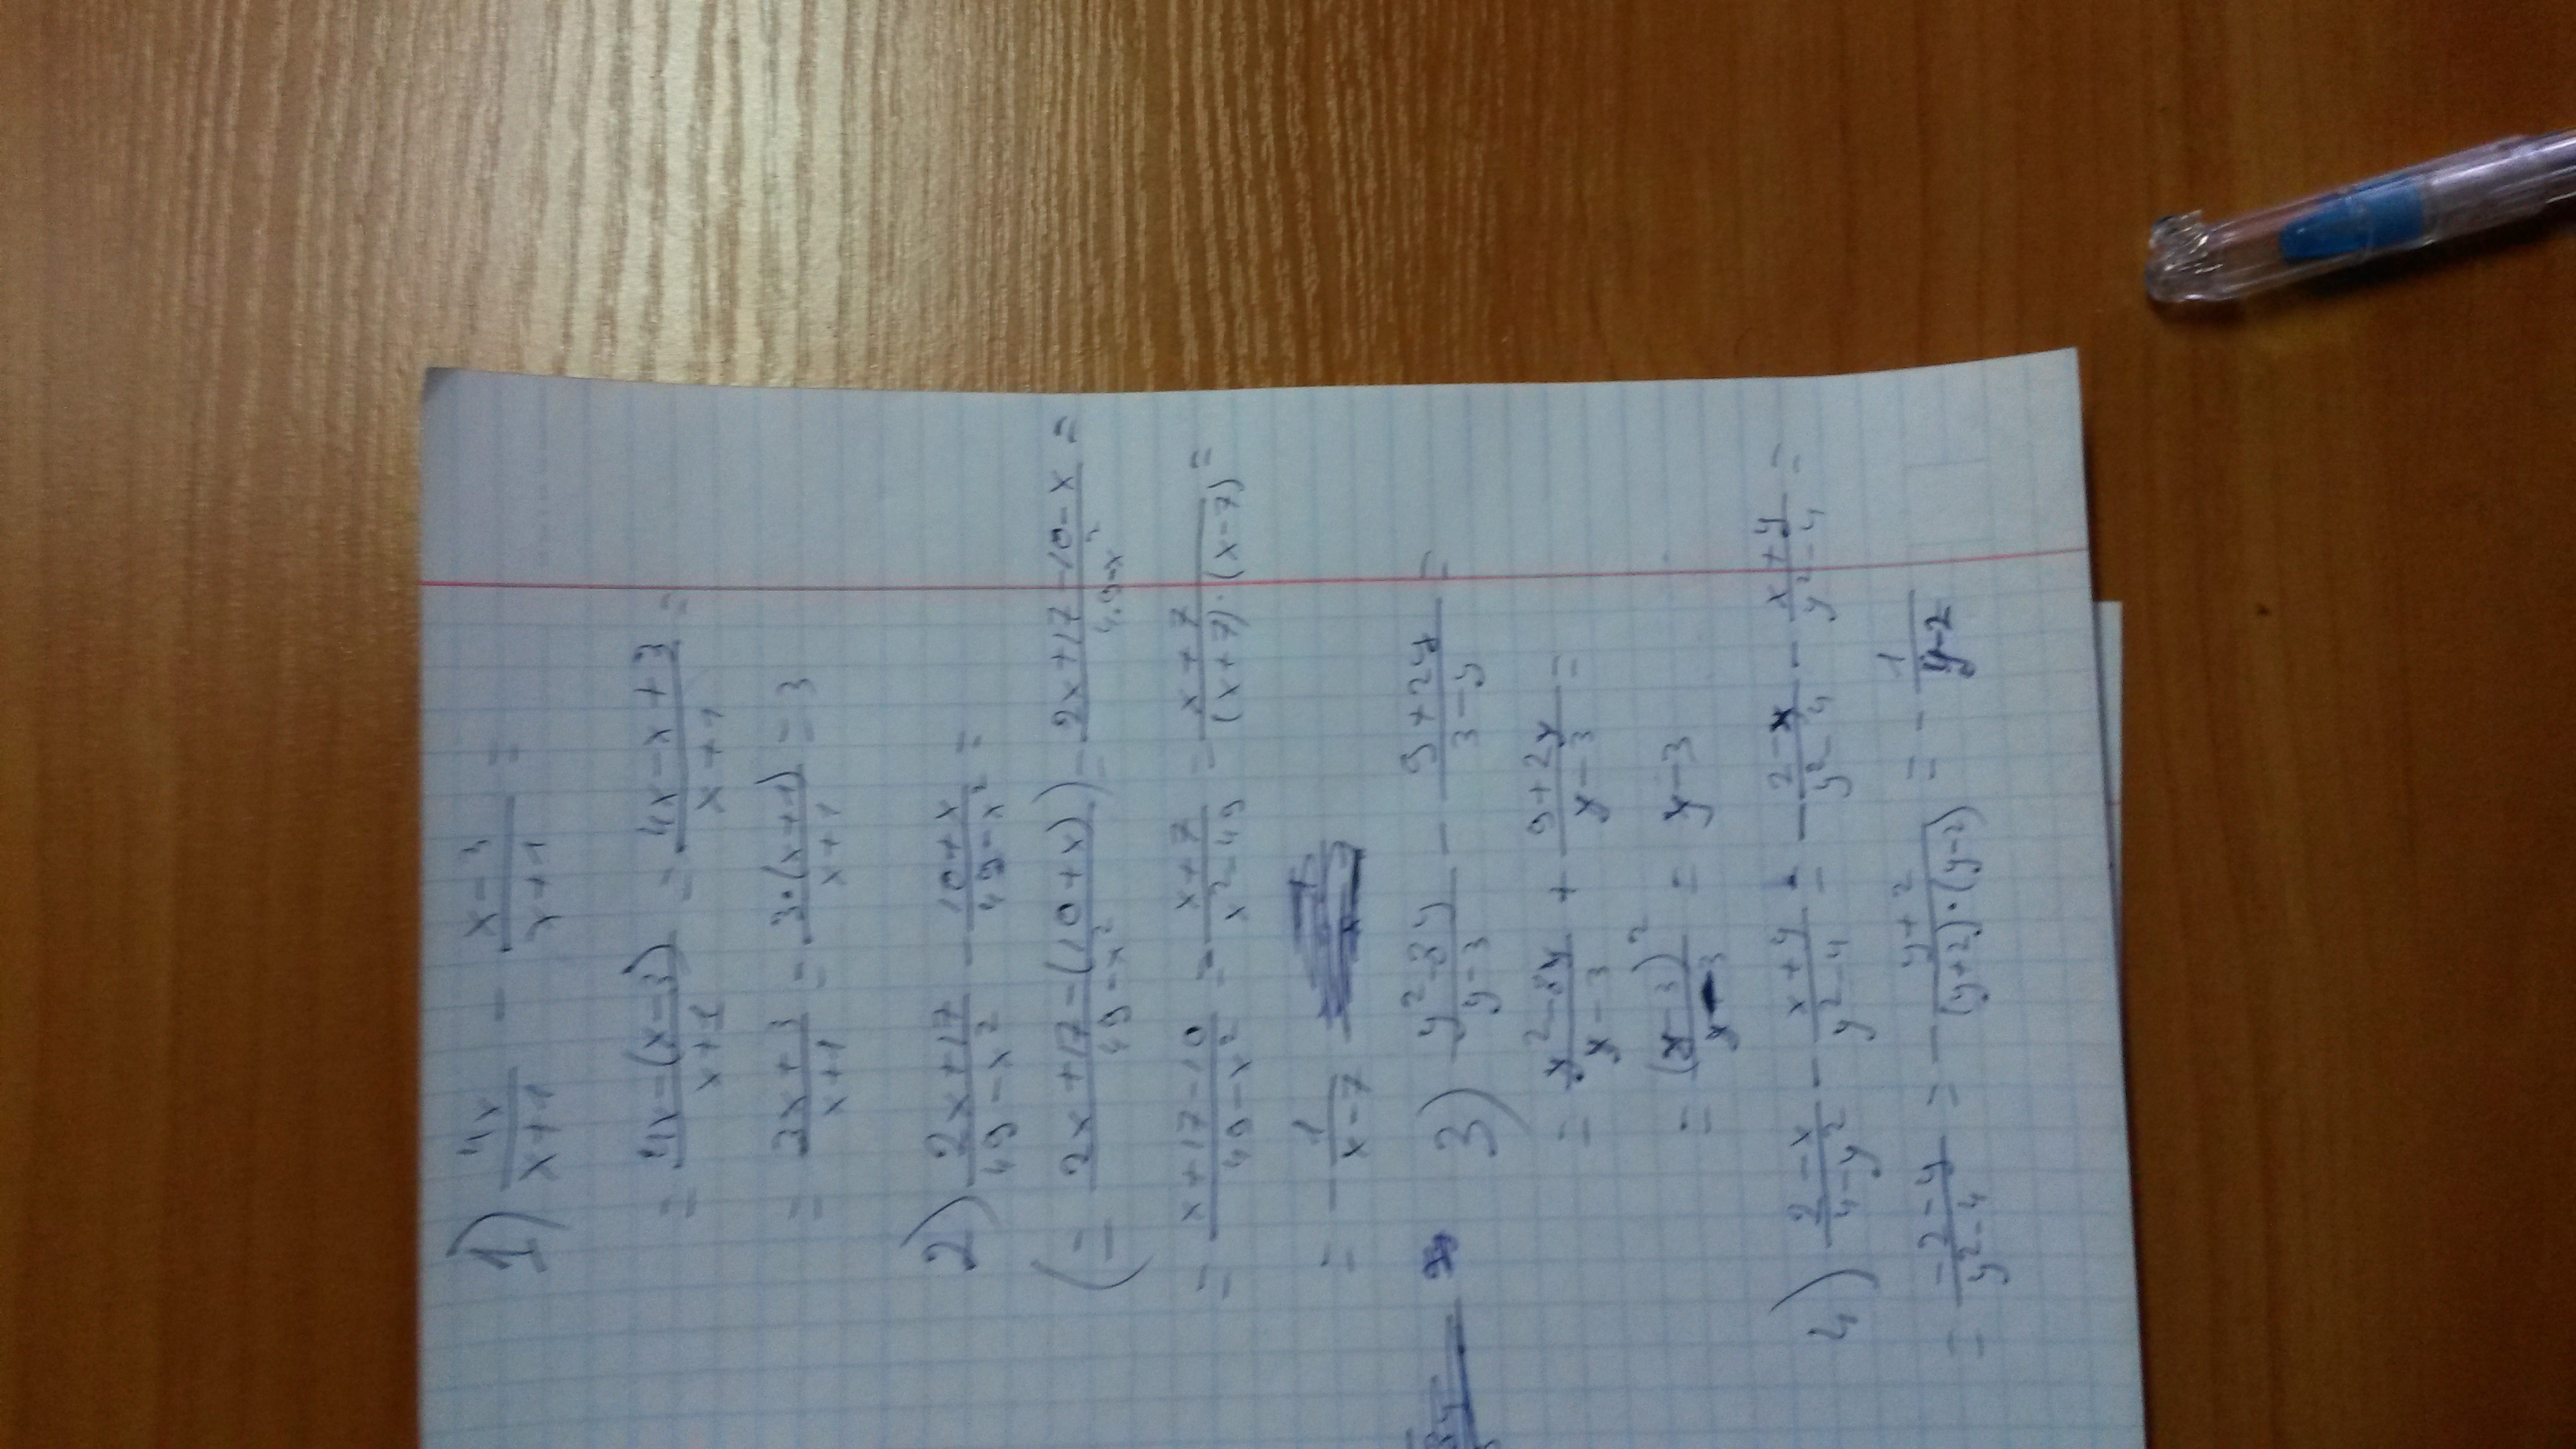 1) 4x/(x+1) - (x-3)/(x+1) =
= (4x-(x-3))/(x+1) = (4x-x+3)/(x+1) =
= (3x+3)/(x+1) = 3·(x+1)/(x+1) = 3
2) (2x+17)/(49-x²) - (10+x)/(49-x²) =
(= (2x+17-(10+x))/(49-x²)) = (2x+17-10-x)/(49-x²) =
= (x+17-10)/(49-x²) = -(x+7)/(x²-49) = -(x+7)/((x+7)·(x-7)) =
= -1/(x-7)
3) (y²-8y)/(y-3) - (9+2y)/(3-y) =
= (y²-8y)/(y-3) + (9+2y)/(y-3) =
= (y-3)²/(y-3) = y-3
4) (2-x)/(4-y²) - (x+y)/(y²-4) = -(2-x)/(y²-4) - (x+y)/(y²-4) =
= (-2-y)/(y²-4) = -(y+2)/((y+2)·(y-2)) = -1/(y-2)